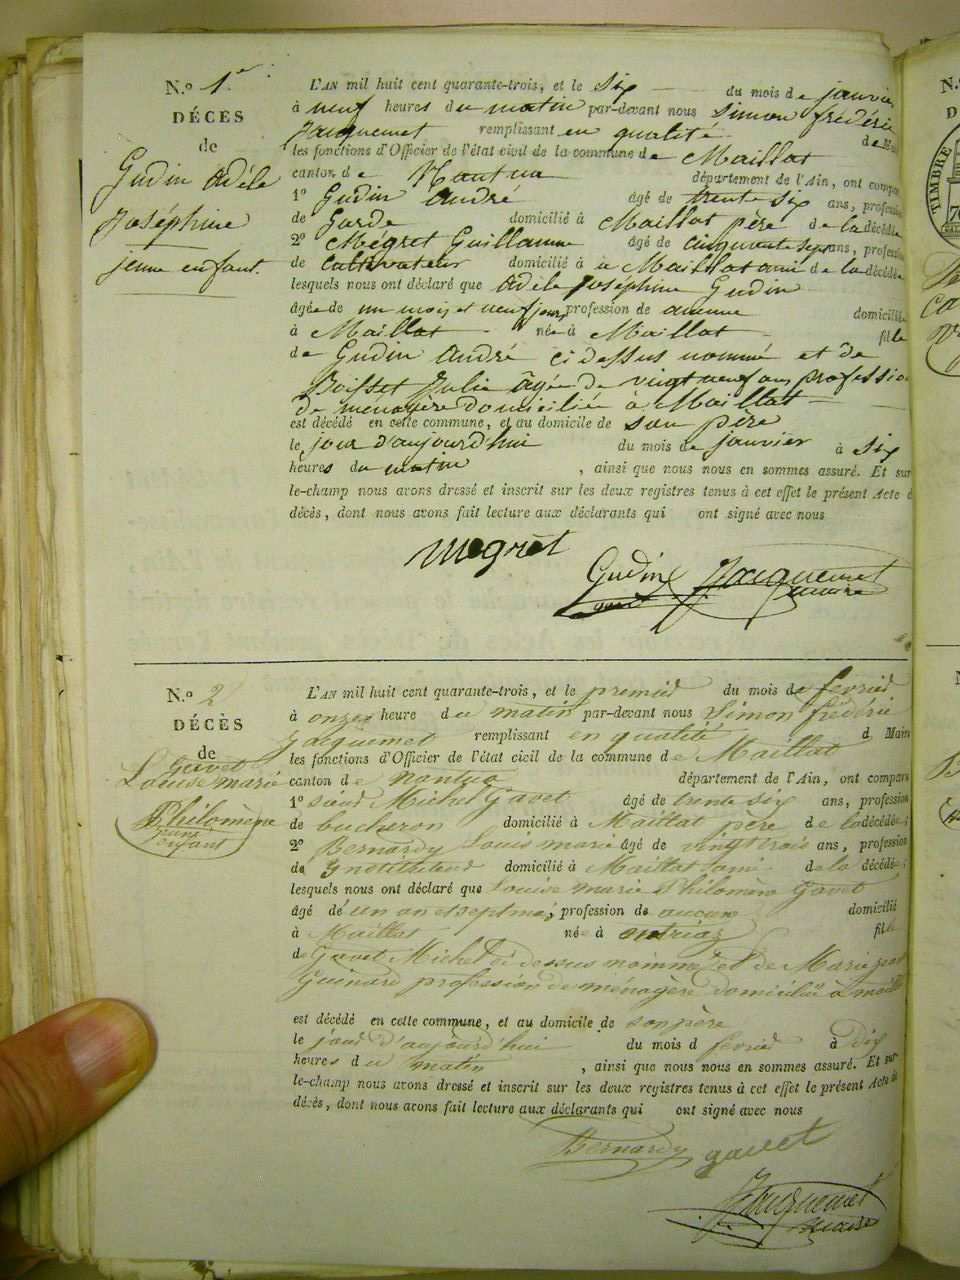 N.o 1er
DÉCÈS
de
Gudin Adèle
Joséphine
jeune enfant.
L'AN mil huit cent quarante-trois, et le six du mois de janvier
à neuf heures du matin par-devant nous Simon frédéric
Jacquemet remplissant en qualité de Mai
les fonctions d'Officier de l'état civil de la commune de Maillat
canton de Nantua département de l'Ain, ont compar
1o Gudin André âgé de trente six ans, profession
de Garde domicilié à Maillat père de la décédée
2o Mégret Guillaume âgé de cinquante sept ans, profession
de Cultivateur domicilié à à Maillat ami de la décédée
lesquels nous ont déclaré que Adèle Joséphine Gudin
âgée de un mois et neuf jours profession de aucune domicilié
à Maillat née à Maillat fille
de Gudin André ci dessus nommé et de
Boisset Julie âgée de vingt neuf ans profession
de menagère domiciliée à Maillat
est décédé en cette commune, et au domicile de son père
le jour d'aujourd'hui du mois de janvier à six
heures du matin , ainsi que nous nous en sommes assuré. Et sur
le-champ nous avons dressé et inscrit sur les deux registres tenus à cet effet le présent Acte d
décès, dont nous avons fait lecture aux déclarants qui ont signé avec nous
Megret
Gudin Jacquemet
maire
N.o 2
DÉCÈS
de
Gavet
Louise marie
Philomène
jeune
enfant
L'AN mil huit cent quarante-trois, et le premier du mois de fevrier
à onze heure du matin par-devant nous Simon frédéric
Jacquemet remplissant en qualité d Maire
les fonctions d'Officier de l'état civil de la commune de Maillat
canton de nantua département de l'Ain, ont comparu
1o sieur Michel Gavet âgé de trente six ans, profession
de bucheron domicilié à Maillat père de la décédée;
2o Bernardy Louis marie âgé de vingt trois ans, profession
de Instituteur domicilié à Maillat ami de la décédée;
lesquels nous ont déclaré que Louise marie Philomène Gavet
âgé de un an et sept mois profession de aucune domicilié
à Maillat née à outriaz fille
de Gavet Michel ci dessus nommé, et de Marie
Guinard profession de menagère domiciliée à maillat
est décédé en cette commune, et au domicile de son père
le jour d'aujourd'hui du mois d fevrier à Dix
heures du matin , ainsi que nous nous en sommes assuré. Et sur
le-champ nous avons dressé et inscrit sur les deux registres tenus à cet effet le présent Acte de
décès, dont nous avons fait lecture aux déclarants qui ont signé avec nous
Bernardy gavet
Jacquemet
maire
TIMBRE